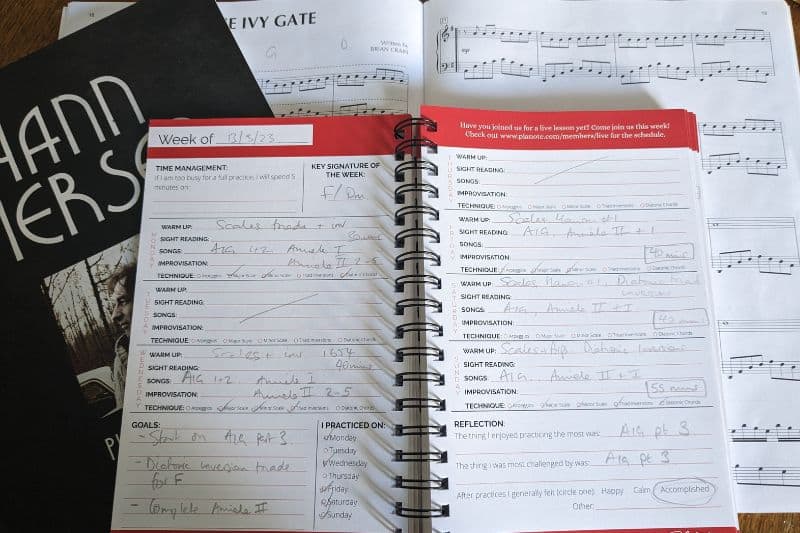 HANN
IERS
P
E IVY GATE
Written by
BRIAN CRAIN
G
Week of 13/3/23
TIME MANAGEMENT:
If I am too busy for a full practice, I will spend 5
minutes on:
KEY SIGNATURE OF
THE WEEK:
F/Dm
MONDAY
WARM UP: Scales triads + inv
SIGHT READING: 30 mins
SONGS: AIG 1+2 Amiele I
IMPROVISATION: Amiele II 2-5
TECHNIQUE: Arpeggios Major Scale Minor Scale Triad Inversions Diatonic Chords
TUESDAY
WARM UP:
SIGHT READING:
SONGS:
IMPROVISATION:
TECHNIQUE: Arpeggios Major Scale Minor Scale Triad Inversions Diatonic Chords
WEDNESDAY
WARM UP: Scales + inv 1654
SIGHT READING: 40 mins
SONGS: AIG 1+2 Amiele I
IMPROVISATION: Amiele II 2-5
TECHNIQUE: Arpeggios Major Scale Minor Scale Triad Inversions Diatonic Chords
GOALS:
- Start on AIG part 3
- Diatonic inversion triads
for F
- Complete Amiele II
I PRACTICED ON:
Monday
Tuesday
Wednesday
Thursday
Friday
Saturday
Sunday
Have you joined us for a live lesson yet? Come join us this week!
Check out www.pianote.com/members/live for the schedule.
THURSDAY
WARM UP:
SIGHT READING:
SONGS:
IMPROVISATION:
TECHNIQUE: Arpeggios Major Scale Minor Scale Triad Inversions Diatonic Chords
FRIDAY
WARM UP: Scales Hanon #1
SIGHT READING: AIG, Amiele II + I
SONGS:
IMPROVISATION: 40 mins
TECHNIQUE: Arpeggios Major Scale Minor Scale Triad Inversions Diatonic Chords
SATURDAY
WARM UP: Scales Hanon #1 Diatonic triad
SIGHT READING: inversion
SONGS: AIG, Amiele II + I
IMPROVISATION: 45 mins
TECHNIQUE: Arpeggios Major Scale Minor Scale Triad Inversions Diatonic Chords
SUNDAY
WARM UP: Scales + Arp Diatonic Inversions
SIGHT READING:
SONGS: AIG, Amiele II + I
IMPROVISATION: 55 mins
TECHNIQUE: Arpeggios Major Scale Minor Scale Triad Inversions Diatonic Chords
REFLECTION:
The thing I enjoyed practicing the most was: AIG pt 3
The thing I was most challenged by was: AIG pt 3
After practices I generally felt (circle one): Happy Calm Accomplished
Other: